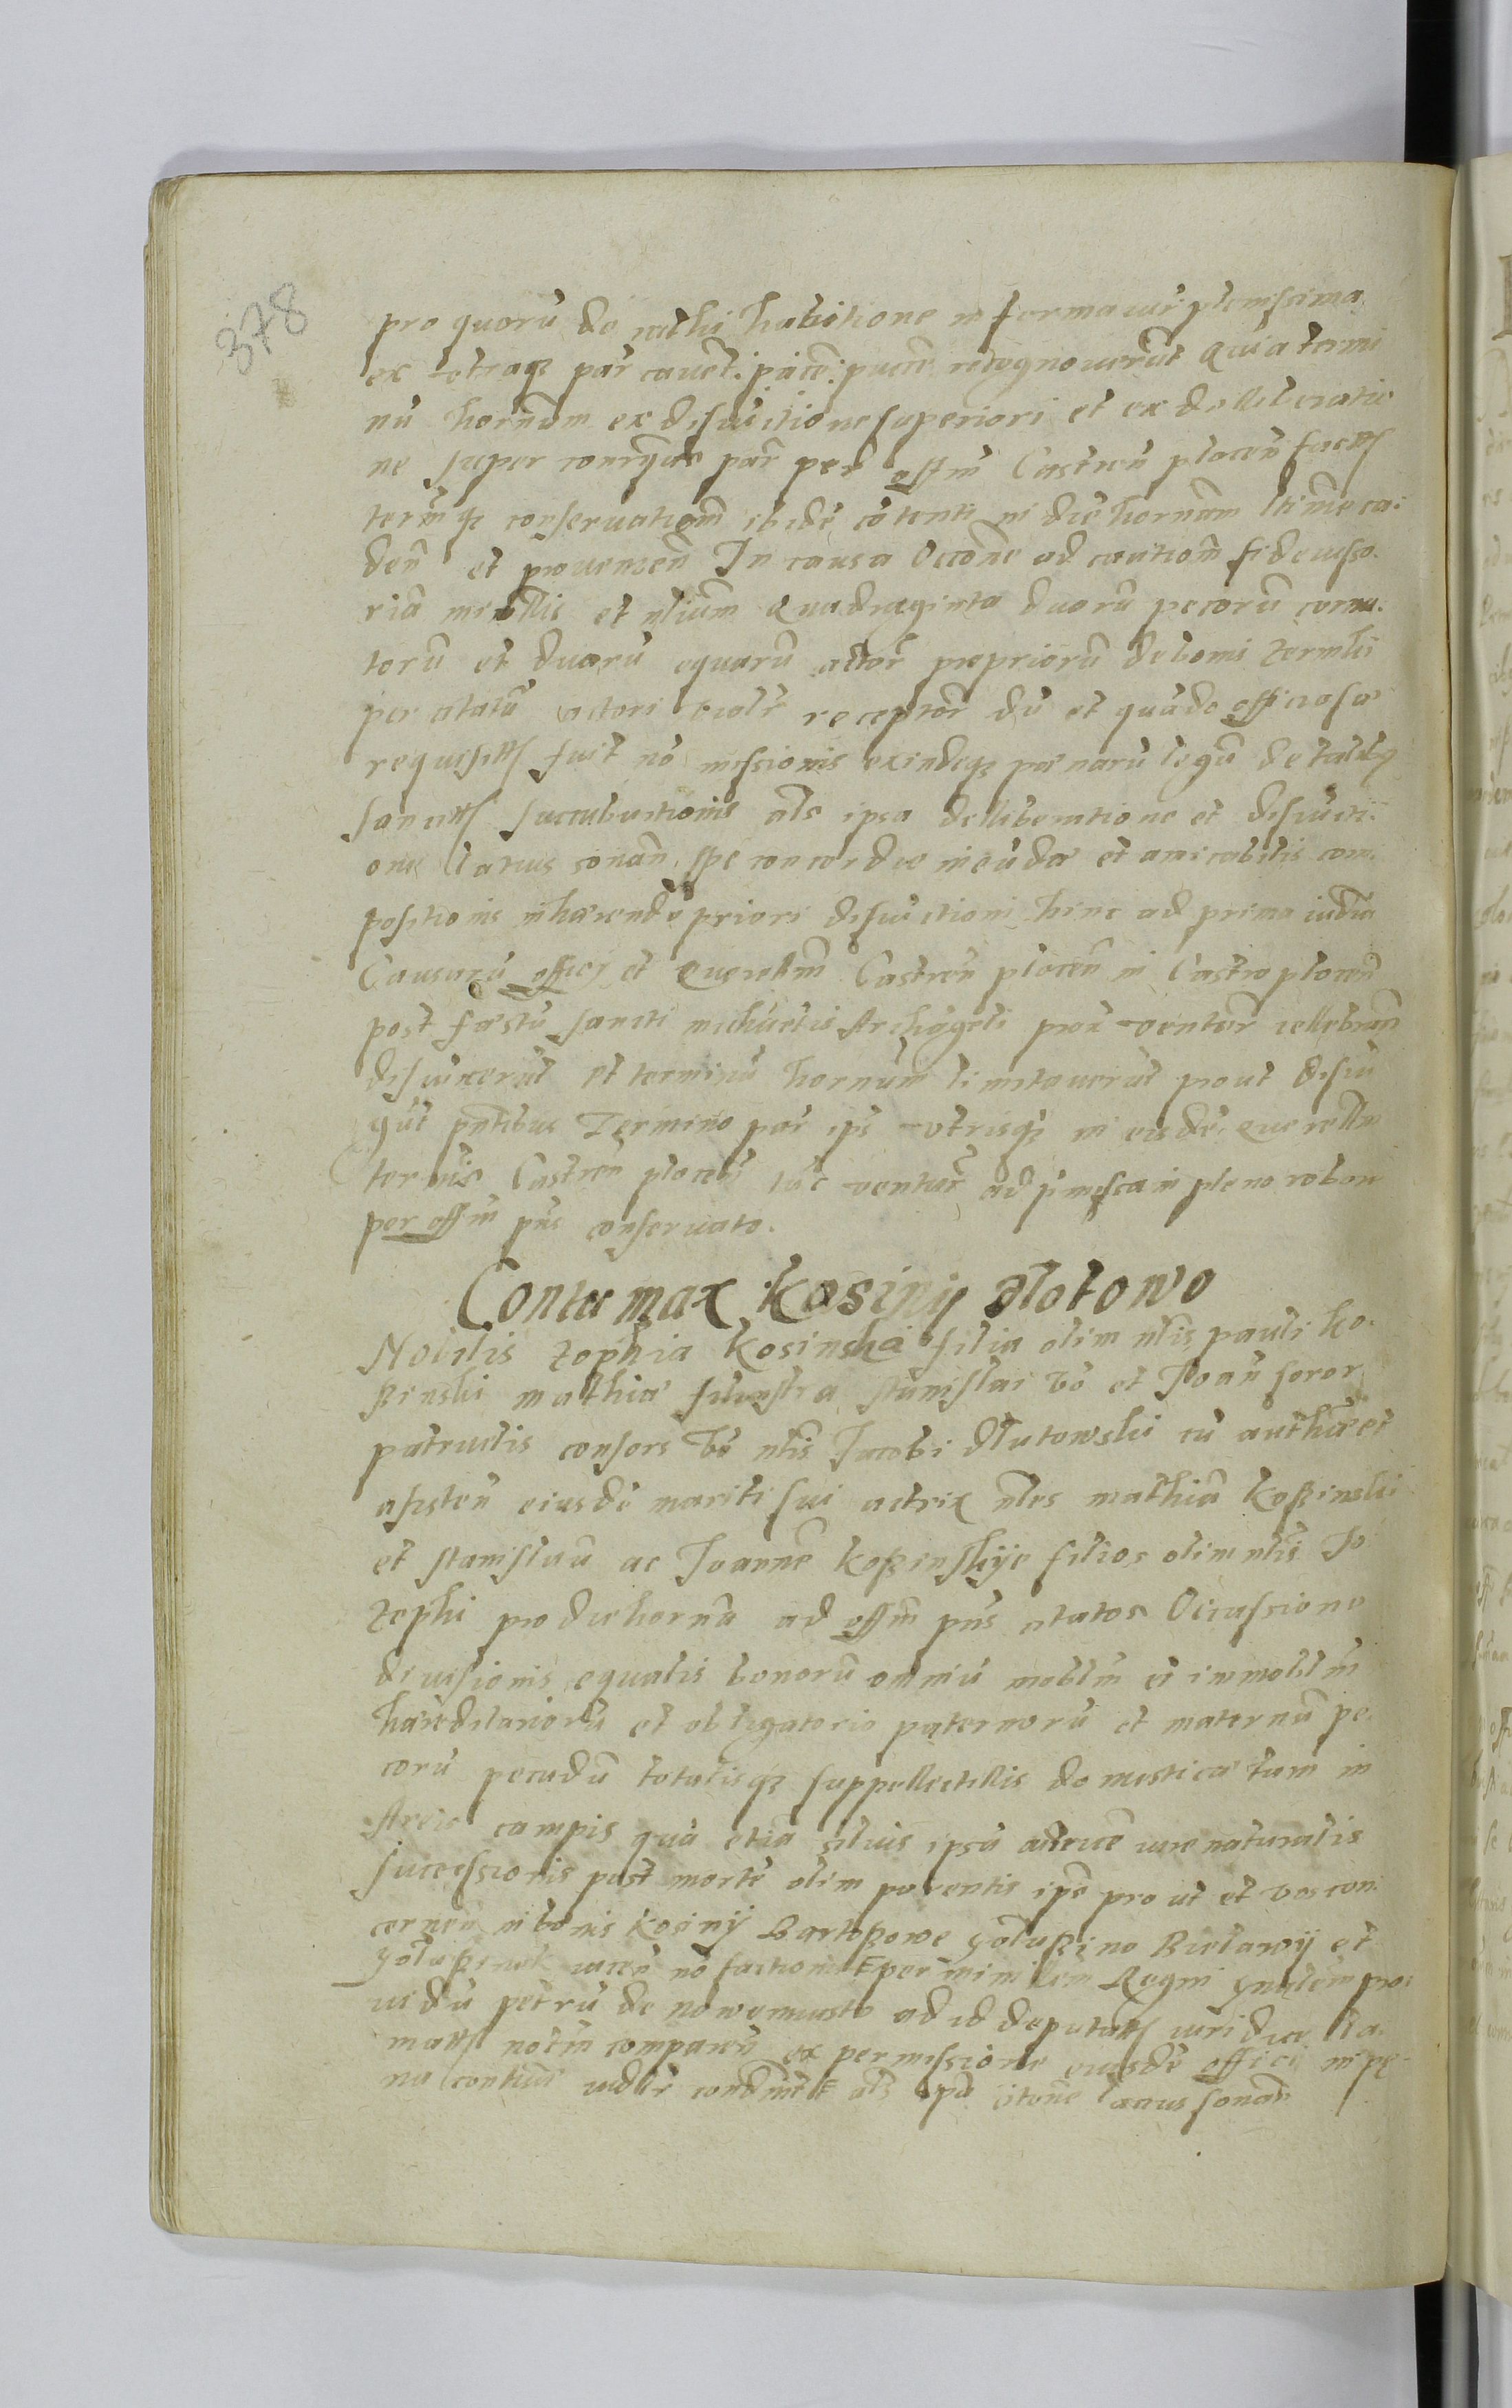 378
pro quorū de rathi habitione in forma iuris plenissima
ex utraqz par cavēt: recognoverūt Quia termi
nū hornum ex disiuitione superiori et ex delliberatio
ne super par per offm Castren plocen factis
terīqz conservationem ibidē cōtenti in die hornam ltime ca:
den et provenien In causa Occōne ad cautionē fideiusso
riā et Quadraginta duorū pecorū cornu.
torū et duarū equarū actor propriorū de boni
per citatū actori receptor dū et quādo officiose
requisitus fuit nō missionis exindeqz pænarū legū de talibz
sancitis succubuitionis als ipsa delliberatione et disiuncti
one latius sonan, spe concordie ineūdæ et amicabilis com
positionis inhærendo priori disiuitioni hinc ad prima iudia
Causarū officij et Querelarū Castren plocen in Castro plocen
post fæstū sancti michaelis Archāgeli prox ventur cellebran
disiūxerūt et terminū hornum limitaverūt prout disiū
gūt pntibus Termino par ips utrisqz in eisdē querellar
termis Castren plocen tūc ventur ad pleno robore
per offm pns conservato.
Contumax Kosiny dlotowo
Nobilis zophia Kosinska filia olim nlis pauli ko.
ßinski mathiæ silvestra stanislai vo et Joan soror
patruelis consors vo nlis Jacobi dlutowski cū authæ et
assisten eiusdē mariti sui actrix nles mathiā koßinski
et stanislaū ac Joannē koßinskije filios olim nlis Jo
zephi pro die hornā ad offm pns citatos Occassione
divisionis equalis bonorū omniū moblm et immoblm
hæreditariorū et obligatorio paternorū et maternū pe.
corū pecudū totaliqz suppellectillis domesticæ tum in
Areis campis quā etiā silvis ipsā actricē iure naturalis
successionis post mortē olim parentis ipē prout et vos con.
cernen in bonis kosinij Bartoßowe golußino Bielawij et
goluß iacen nō factione per ministm Regni gnalem pro:
vidū petrū de nowemiasto ad id deputatū iuridice cla.
matos notm comparen ex permissione eiusdē officij in pe.
na contūæ condnt als ipa citone latius sonan